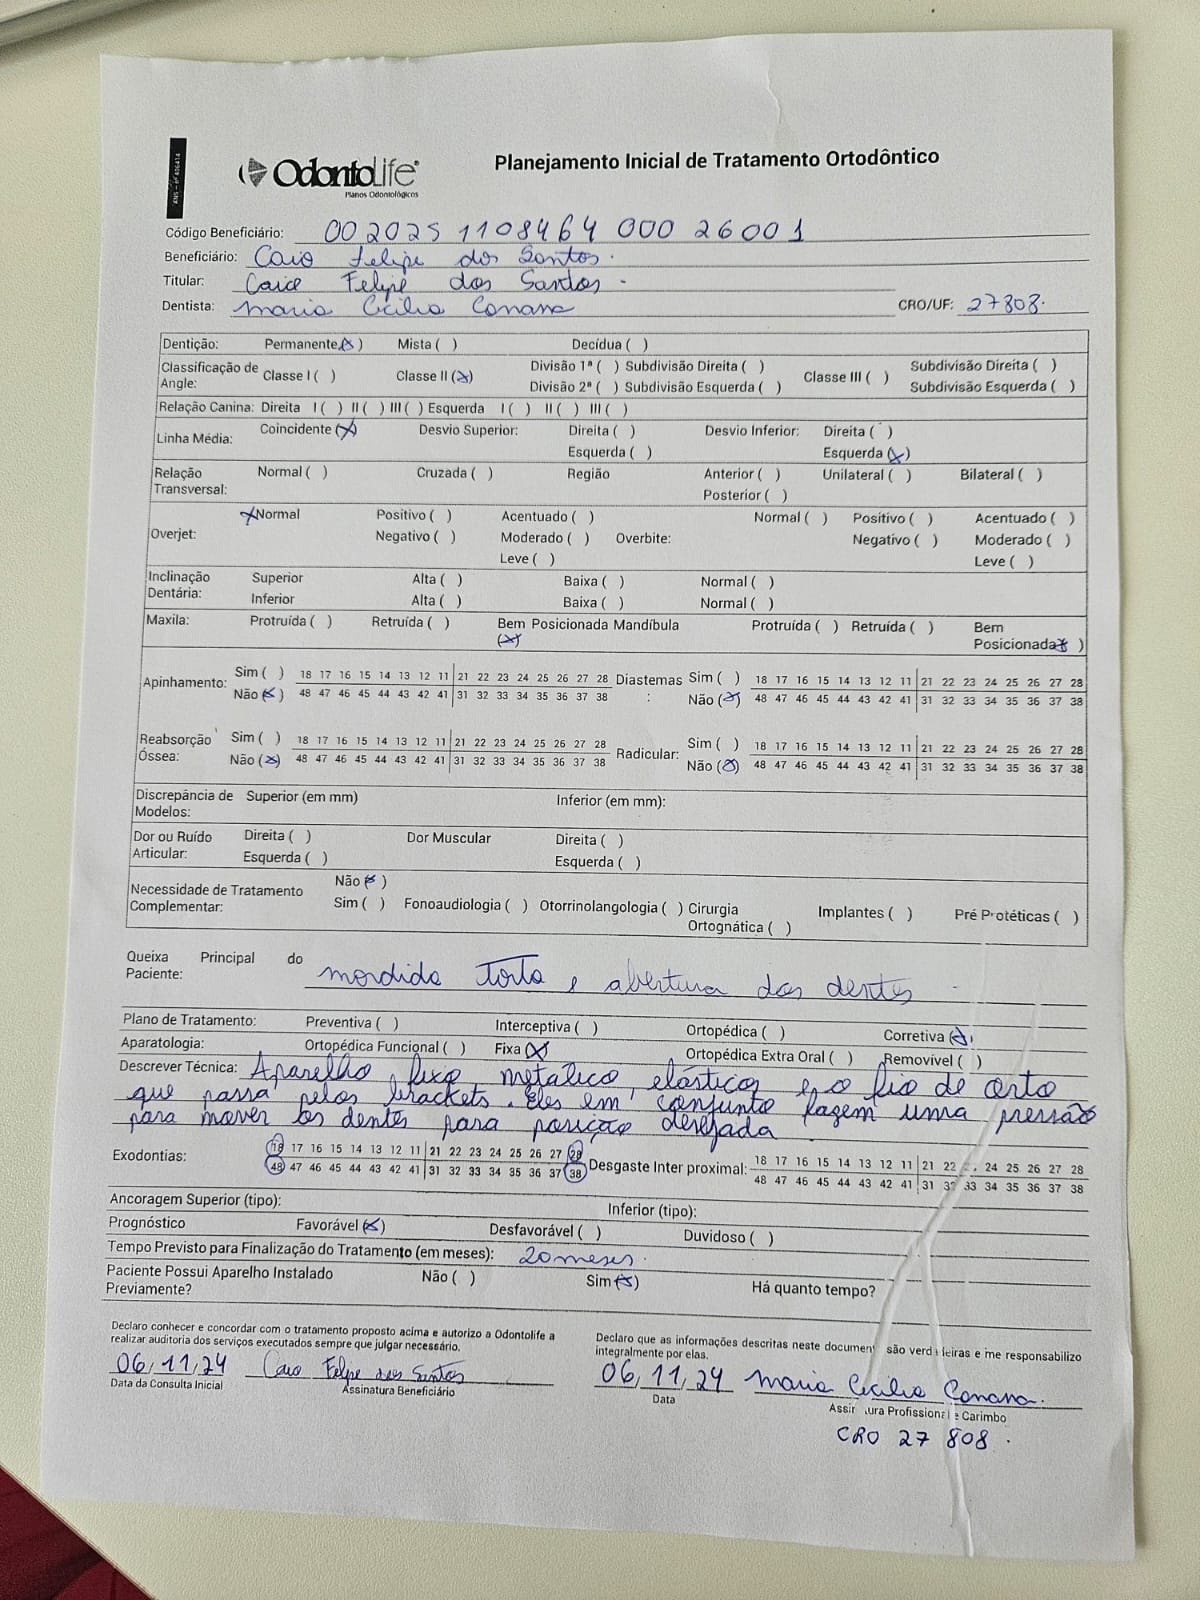 ANS - nº 406414
OdontoLife®
Planos Odontológicos
Planejamento Inicial de Tratamento Ortodôntico
Código Beneficiário: 00 2025 1108464 000 26001
Beneficiário: Caio Felipe dos Santos.
Titular: Caio Felipe dos Santos.
Dentista: Maria Cecilia Conana CRO/UF: 27808.
Dentição: Permanente(x) Mista ( ) Decídua ( )
Classificação de Angle: Classe I ( ) Classe II (x) Divisão 1ª ( ) Subdivisão Direita ( ) Classe III ( ) Subdivisão Direita ( )
Divisão 2ª ( ) Subdivisão Esquerda ( ) Subdivisão Esquerda ( )
Relação Canina: Direita I ( ) II ( ) III ( ) Esquerda I ( ) II ( ) III ( )
Linha Média: Coincidente (x) Desvio Superior: Direita ( ) Desvio Inferior: Direita ( )
Esquerda ( ) Esquerda (x)
Relação Transversal: Normal ( ) Cruzada ( ) Região Anterior ( ) Unilateral ( ) Bilateral ( )
Posterior ( )
Overjet: x Normal Positivo ( ) Acentuado ( ) Overbite: Normal ( ) Positivo ( ) Acentuado ( )
Negativo ( ) Moderado ( ) Negativo ( ) Moderado ( )
Leve ( ) Leve ( )
Inclinação Dentária: Superior Alta ( ) Baixa ( ) Normal ( )
Inferior Alta ( ) Baixa ( ) Normal ( )
Maxila: Protruída ( ) Retruída ( ) Bem Posicionada (x) Mandíbula Protruída ( ) Retruída ( ) Bem Posicionada(x)
Apinhamento: Sim ( ) 18 17 16 15 14 13 12 11 21 22 23 24 25 26 27 28 Diastemas : Sim ( ) 18 17 16 15 14 13 12 11 21 22 23 24 25 26 27 28
Não (x) 48 47 46 45 44 43 42 41 31 32 33 34 35 36 37 38 Não (x) 48 47 46 45 44 43 42 41 31 32 33 34 35 36 37 38
Reabsorção Óssea: Sim ( ) 18 17 16 15 14 13 12 11 21 22 23 24 25 26 27 28 Radicular: Sim ( ) 18 17 16 15 14 13 12 11 21 22 23 24 25 26 27 28
Não (x) 48 47 46 45 44 43 42 41 31 32 33 34 35 36 37 38 Não (x) 48 47 46 45 44 43 42 41 31 32 33 34 35 36 37 38
Discrepância de Modelos: Superior (em mm) Inferior (em mm):
Dor ou Ruído Articular: Direita ( ) Dor Muscular Direita ( )
Esquerda ( ) Esquerda ( )
Necessidade de Tratamento Complementar: Não (x)
Sim ( ) Fonoaudiologia ( ) Otorrinolangologia ( ) Cirurgia Ortognática ( ) Implantes ( ) Pré Protéticas ( )
Queixa Principal do Paciente: mordida torta e abertura dos dentes.
Plano de Tratamento: Preventiva ( ) Interceptiva ( ) Ortopédica ( ) Corretiva (x)
Aparatologia: Ortopédica Funcional ( ) Fixa (x) Ortopédica Extra Oral ( ) Removível ( )
Descrever Técnica: Aparelho fixo metalico, elásticos e o fio de arto
que passa pelos brackets. Eles em conjunto fazem uma pressão
para mover os dentes para posição desejada
Exodontias: 18 17 16 15 14 13 12 11 21 22 23 24 25 26 27 28 Desgaste Inter proximal: 18 17 16 15 14 13 12 11 21 22 24 25 26 27 28
48 47 46 45 44 43 42 41 31 32 33 34 35 36 37 38 48 47 46 45 44 43 42 41 31 32 33 34 35 36 37 38
Ancoragem Superior (tipo): Inferior (tipo):
Prognóstico Favorável (x) Desfavorável ( ) Duvidoso ( )
Tempo Previsto para Finalização do Tratamento (em meses): 20 meses.
Paciente Possui Aparelho Instalado Previamente? Não ( ) Sim (x) Há quanto tempo?
Declaro conhecer e concordar com o tratamento proposto acima e autorizo a Odontolife a
realizar auditoria dos serviços executados sempre que julgar necessário.
06/11/24 Caio Felipe dos Santos
Data da Consulta Inicial Assinatura Beneficiário
Declaro que as informações descritas neste document são verdadeiras e me responsabilizo
integralmente por elas.
06/11/24 Maria Cecilia Conana.
Data Assinatura Profissional e Carimbo
CRO 27 808.